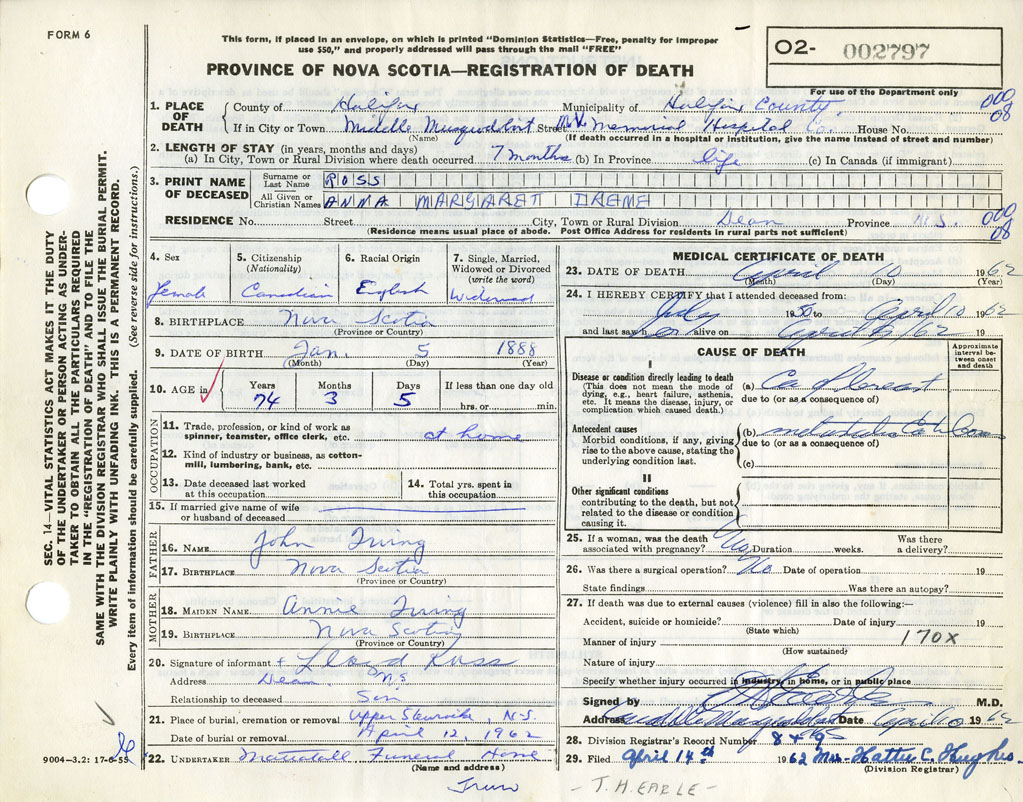 FORM 6
This form, if placed in an envelope, on which is printed "Dominion Statistics—Free, penalty for improper
use $50," and properly addressed will pass through the mail "FREE"
PROVINCE OF NOVA SCOTIA—REGISTRATION OF DEATH
O2- 002797
For use of the Department only
SEC. 14—VITAL STATISTICS ACT MAKES IT THE DUTY
OF THE UNDERTAKER OR PERSON ACTING AS UNDER-
TAKER TO OBTAIN ALL THE PARTICULARS REQUIRED
IN THE "REGISTRATION OF DEATH" AND TO FILE THE
SAME WITH THE DIVISION REGISTRAR WHO SHALL ISSUE THE BURIAL PERMIT.
WRITE PLAINLY WITH UNFADING INK. THIS IS A PERMANENT RECORD.
Every item of information should be carefully supplied. (See reverse side for instructions.)
1. PLACE OF DEATH County of Halifax Municipality of Halifax County 000 08
If in City or Town Middle Musquodoboit Street Memorial Hospital Co. House No.
(Name) (If death occurred in a hospital or institution, give the name instead of street and number)
2. LENGTH OF STAY (in years, months and days)
(a) In City, Town or Rural Division where death occurred 7 months (b) In Province life (c) In Canada (if immigrant)
3. PRINT NAME OF DECEASED Surname or Last Name ROSS
All Given or Christian Names ANNA MARGARET IRENE
RESIDENCE No. Street City, Town or Rural Division Dean Province N.S. 000 08
(Residence means usual place of abode. Post Office Address for residents in rural parts not sufficient)
4. Sex Female
5. Citizenship (Nationality) Canadian
6. Racial Origin English
7. Single, Married, Widowed or Divorced (write the word) Widowed
8. BIRTHPLACE Nova Scotia
(Province or Country)
9. DATE OF BIRTH Jan. 5 1888
(Month) (Day) (Year)
10. AGE in Years 74 Months 3 Days 5 If less than one day old hrs. or min.
OCCUPATION
11. Trade, profession, or kind of work as spinner, teamster, office clerk, etc. at home
12. Kind of industry or business, as cotton-mill, lumbering, bank, etc.
13. Date deceased last worked at this occupation
14. Total yrs. spent in this occupation
15. If married give name of wife or husband of deceased
FATHER
16. NAME John Irving
17. BIRTHPLACE Nova Scotia
(Province or Country)
MOTHER
18. MAIDEN NAME Annie Irving
19. BIRTHPLACE Nova Scotia
(Province or Country)
20. Signature of informant + Lloyd Ross
Address Dean N.S.
Relationship to deceased Son
21. Place of burial, cremation or removal Upper Stewiacke, N.S.
Date of burial or removal April 12, 1962
22. UNDERTAKER Mattatall Funeral Home
(Name and address)
Truro
9004-3.2: 17-6-55
MEDICAL CERTIFICATE OF DEATH
23. DATE OF DEATH April 10 1962
(Month) (Day) (Year)
24. I HEREBY CERTIFY that I attended deceased from:
July 1950 to April 10 1962
and last saw her alive on April 6/62 19
CAUSE OF DEATH
Approximate interval between onset and death
I
Disease or condition directly leading to death (a) Ca of breast
(This does not mean the mode of dying, e.g., heart failure, asthenia, etc. It means the disease, injury, or complication which caused death.)
due to (or as a consequence of)
Antecedent causes (b)
Morbid conditions, if any, giving rise to the above cause, stating the underlying condition last.
due to (or as a consequence of)
(c)
II
Other significant conditions
contributing to the death, but not related to the disease or condition causing it.
25. If a woman, was the death associated with pregnancy? No Duration weeks. Was there a delivery?
26. Was there a surgical operation? No Date of operation 19
State findings Was there an autopsy?
27. If death was due to external causes (violence) fill in also the following:—
Accident, suicide or homicide? Date of injury 19
(State which)
Manner of injury 170X
(How sustained)
Nature of injury
Specify whether injury occurred in industry, in home, or in public place
Signed by M.D.
Address Middle Musquodoboit Date April 10 1962
28. Division Registrar's Record Number 849
29. Filed April 14th 1962 Mrs. Hattie C. Hughes
(Division Registrar)
- T. H. EARLE -